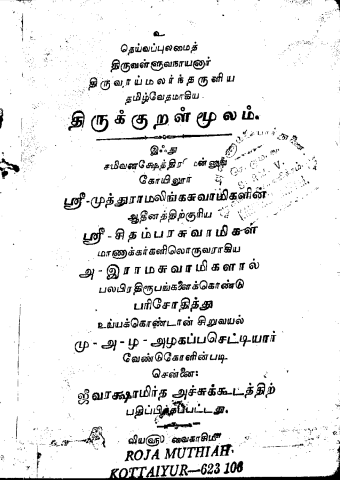 உ
தெய்வப்புலமைத்
திருவள்ளுவநாயனார்
திருவாய்மலர்ந்தருளிய
தமிழ்வேதமாகிய
திருக்குறள்மூலம்.
இஃது
கோயிலூர்
ஸ்ரீ-முத்துராமலிங்கசுவாமிகளின்
ஆதீனத்திற்குரிய
ஸ்ரீ-சிதம்பரசுவாமிகள்
மாணாக்கர்களிலொருவராகிய
அ-இராமசுவாமிகளால்
பலபிரதிரூபங்களைக்கொண்டு
பரிசோதித்து
உய்யக்கொண்டான் சிறுவயல்
மு-அ-ழ-அழகப்பசெட்டியார்
வேண்டுகோளின்படி
சென்னை:
ஜீவரக்ஷாமிர்த அச்சுக்கூடத்திற்
பதிப்பிக்கப்பட்டது.
ROJA MUTHIAH,
KOTTAIYUR—623 106